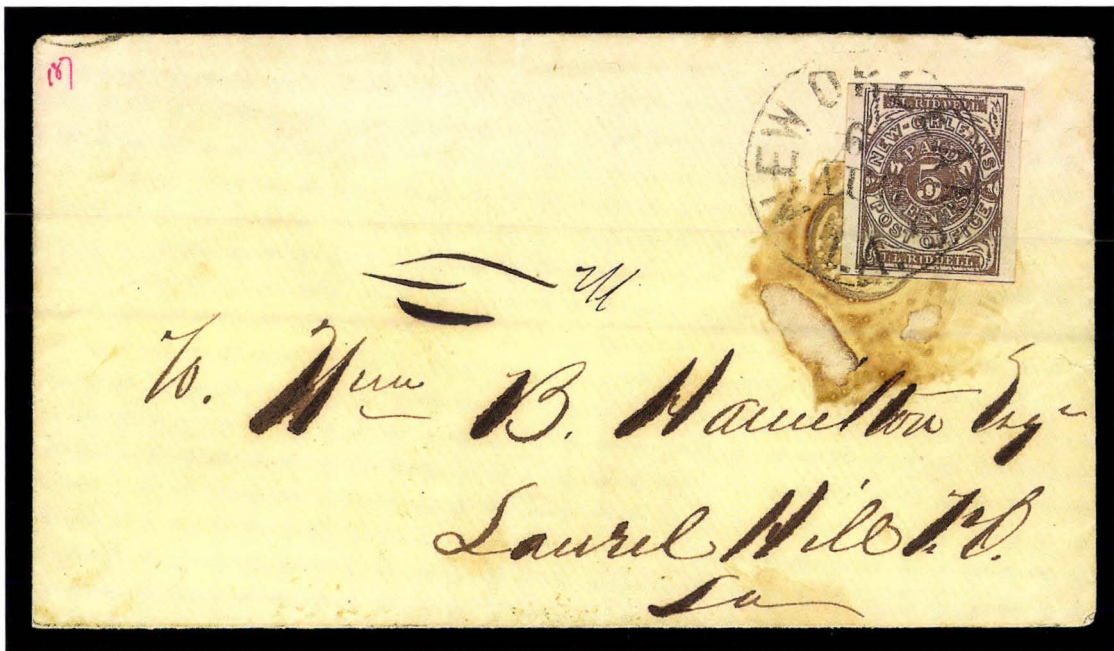 187
NEW OR
6
LA
J.L. RIDDELL
NEW-ORLEANS
PAID
5
CENTS
POST OFFICE
J.L. RIDDELL
To. Wm B. Hamilton Esqr
Laurel Hill P.O.
La